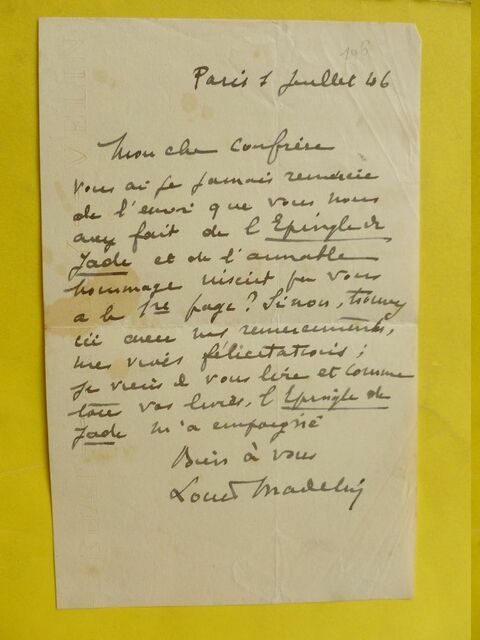 198
Paris 1 Juillet 46
Mon cher confrère
Vous ai-je jamais remercié
de l'envoi que vous nous
avez fait de l'Epingle de
Jade et de l'aimable
hommage inscrit par vous
à la 1re page ? Sinon, trouvez
ici avec mes remerciements,
mes vives félicitations ;
je viens de vous lire et comme
tous vos livres, l'Epingle de
Jade m'a empoigné
Bien à vous
Louis Madelin
VELIN